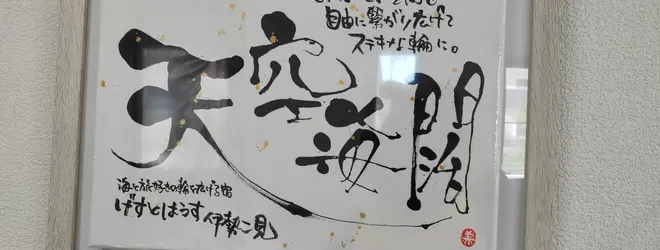 自由に繋がり広げて
ステキな輪に。
天空海闊
海と旅好きの輪を広げる宿
げすとはうす伊勢二見